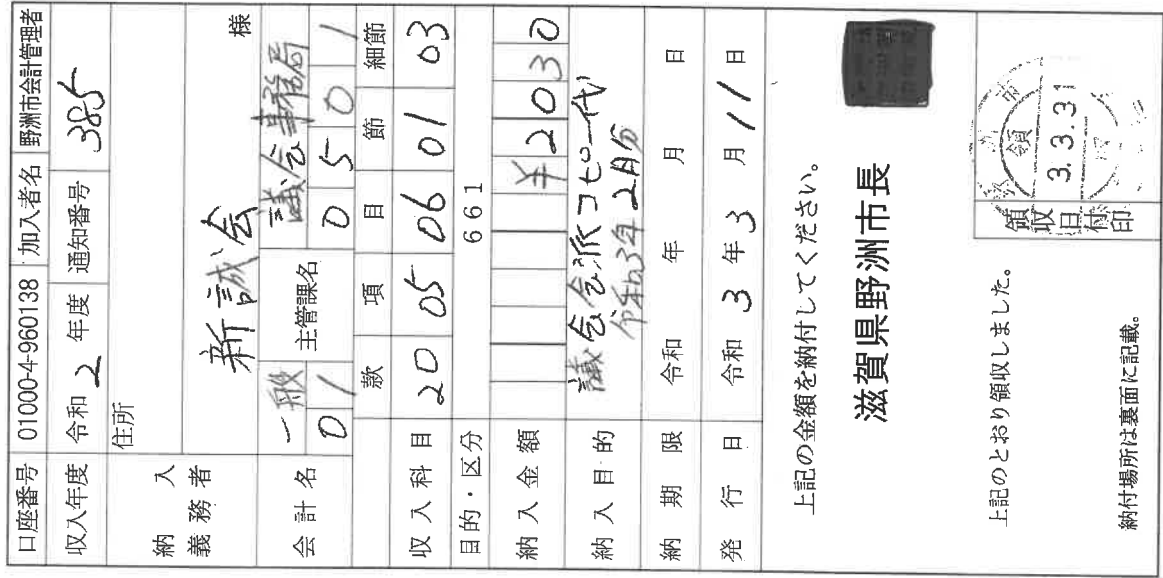 口座番号 01000-4-960138 加入者名 野洲市会計管理者
収入年度 令和 2 年度 通知番号 385
納入義務者 住所
新誠会 様
会計名 一般 主管課名 議会事務局
01 0501
款 項 目 節 細節
収入科目 20 05 06 01 03
目的・区分 661
納入金額 ¥2030
納入目的 議会会派コピー代
令和3年2月分
納期限 令和 年 月 日
発行日 令和 3 年 3 月 11 日
上記の金額を納付してください。
滋賀県野洲市長
上記のとおり領収しました。
領収日付印
市
領
3.3.31
納付場所は裏面に記載。